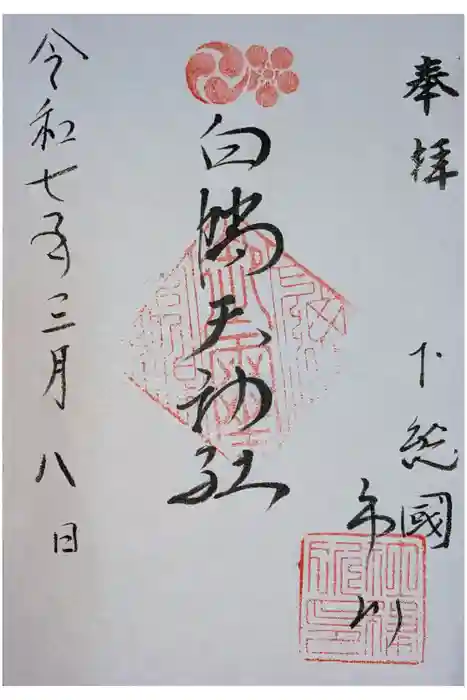 奉拝
下総國
市川
白幡天神社
令和七年三月八日